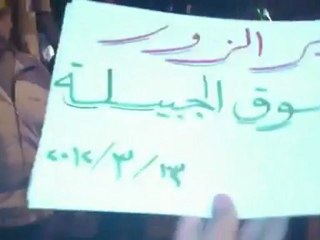 ير الزور
سوق الجبيلة
٢٠١٢/٣/٢٣